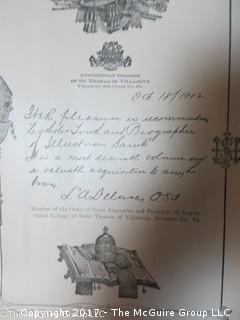 AUGUSTINIAN COLLEGE
OF ST. THOMAS OF VILLANOVA
VILLANOVA, DELAWARE CO., PA.
Oct 18/1902
I take pleasure in recommending
and Biographies
of Illustrious Saints
It is a most desirable volume and
a valuable acquisition to any
O.S.A.
Member of the Order of Saint Augustine and President of Augus-
tinian College of Saint Thomas of Villanova, Delaware Co., Pa.
Copyright ©2017 - The McGuire Group LLC